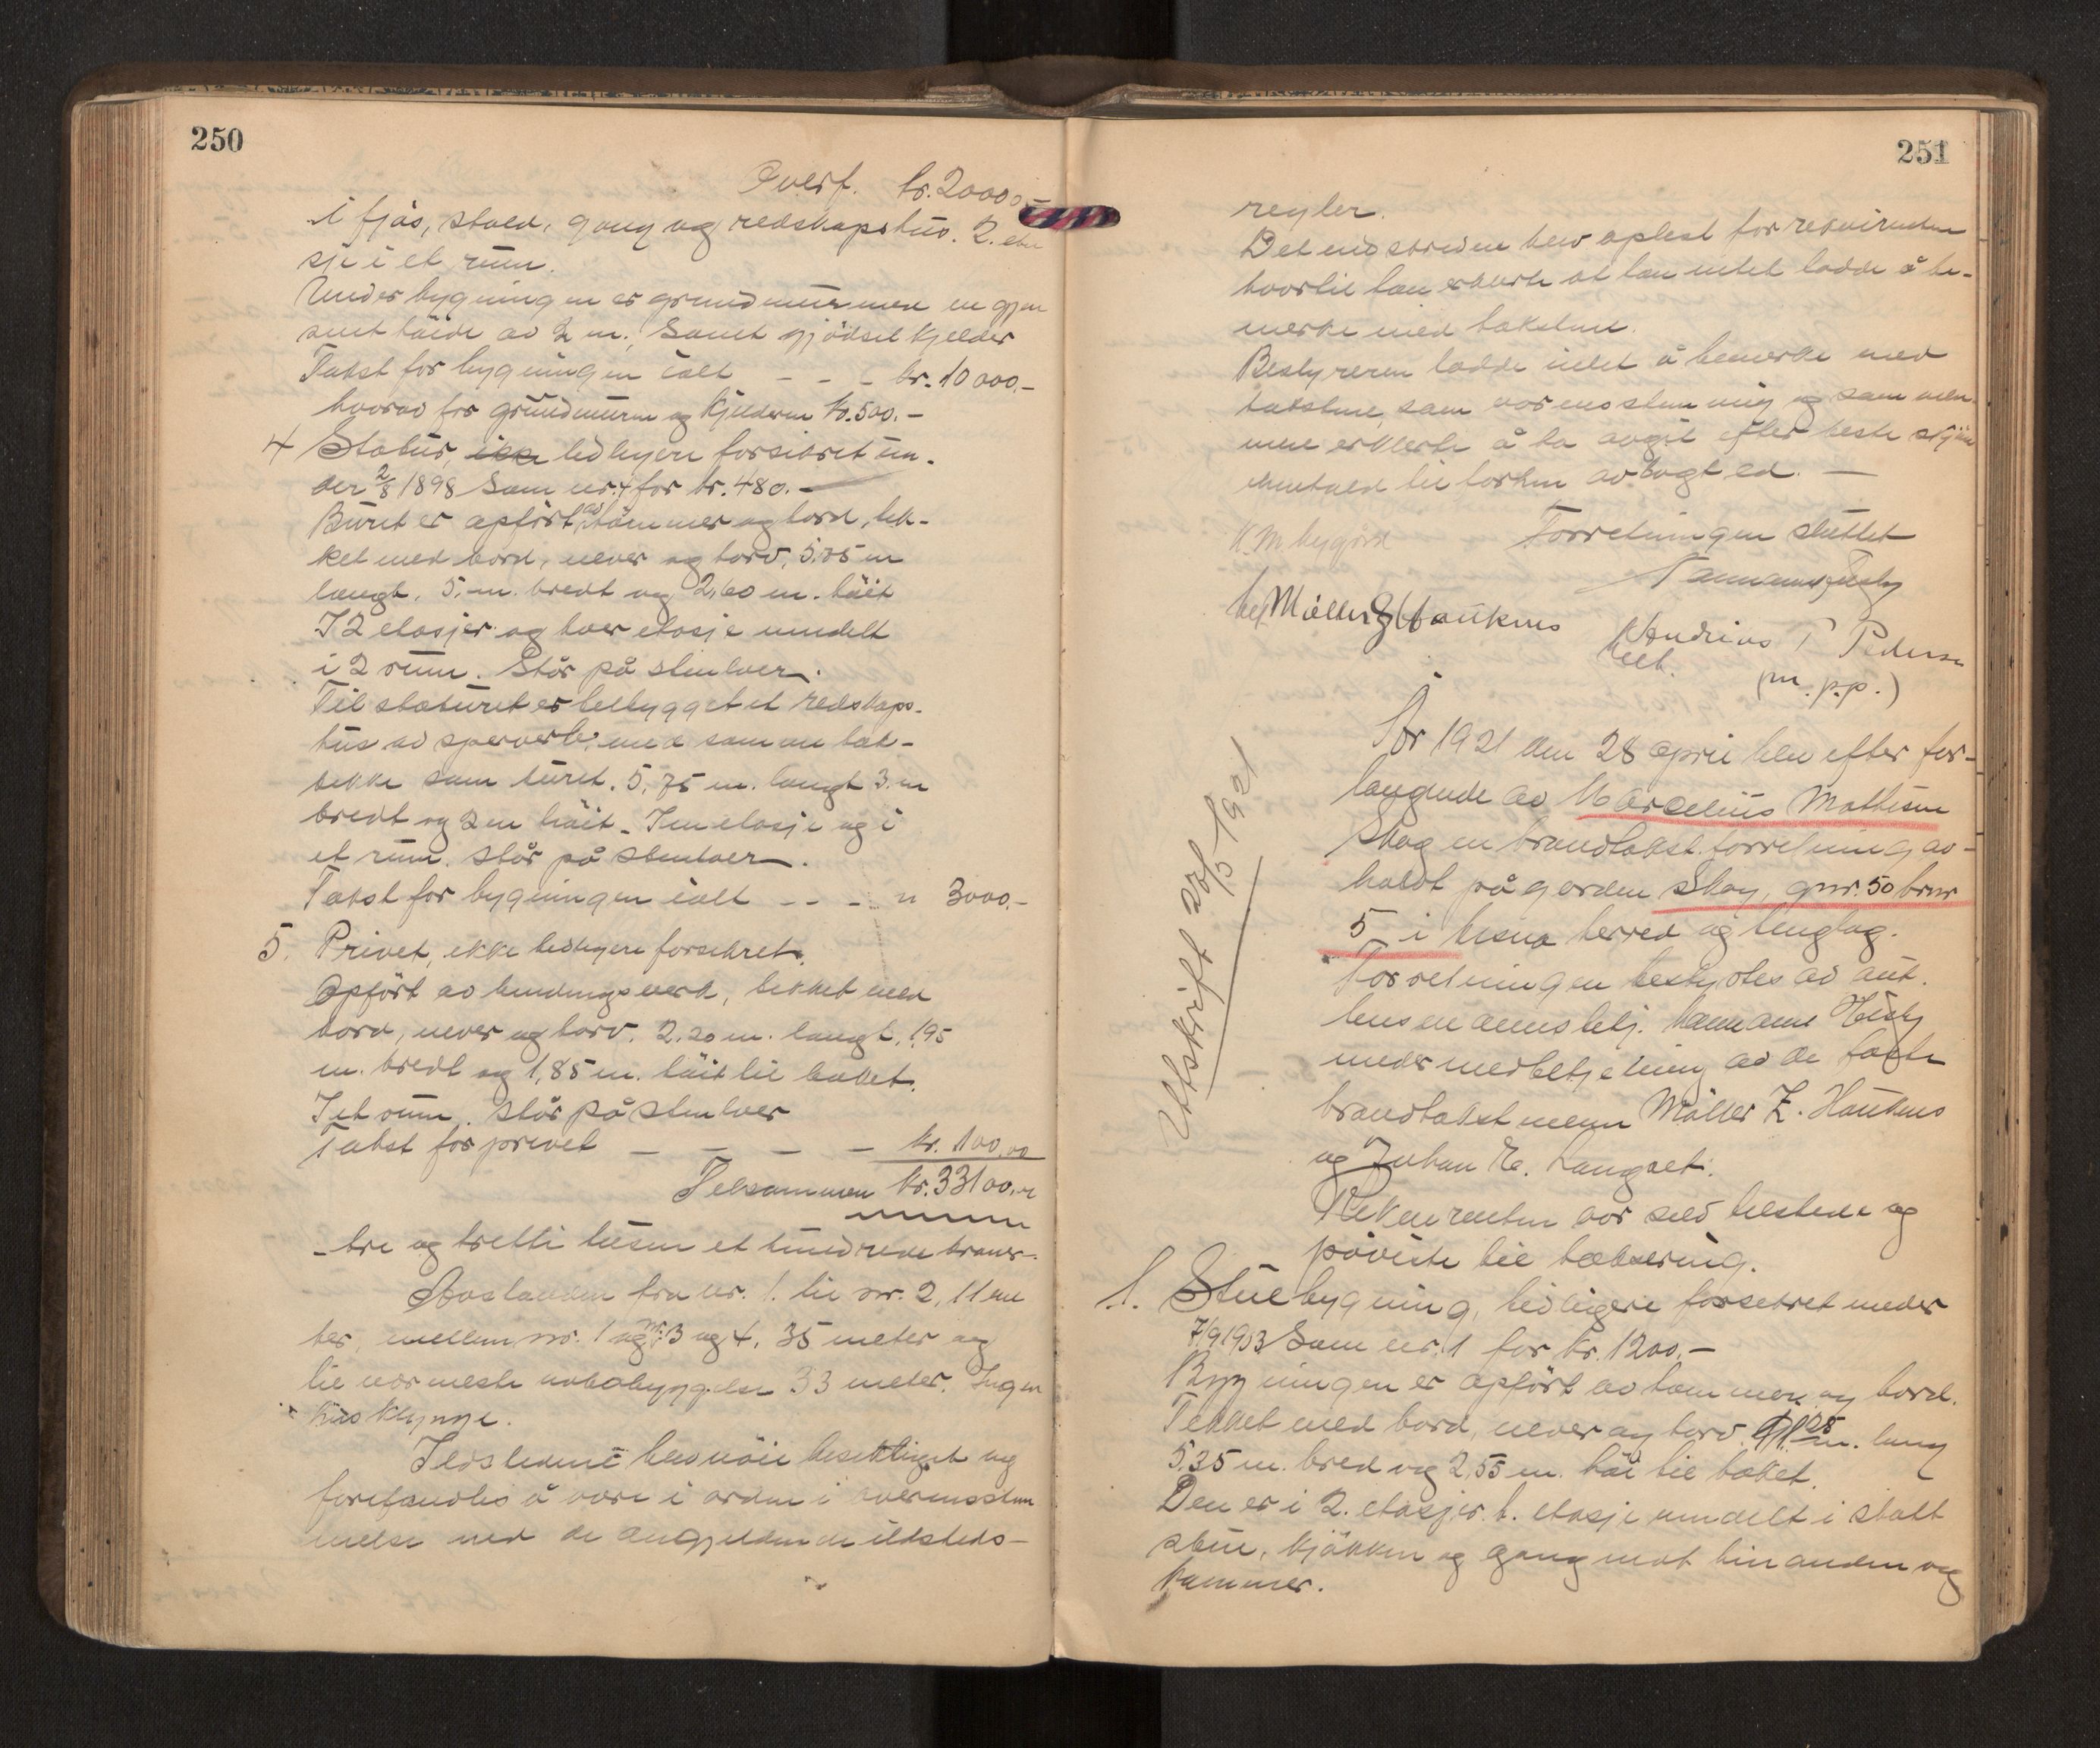 250
Overf. kr. 20000.-
i fjøs, stald, gang og redskapshus. 2. eta
sje i et rum.
Underbygningen er grundmur med en gjen
snit høide av 2 m., samt gjødsel kjelder
Takst for bygningen ialt - - - kr. 10000.-
hvorav for grundmuren og kjelderen kr. 500.-
4 Stabur, ikke tidligere forsikret un-
der 2/8 1898 som nr. 4 for kr. 480.-
Buret er opført av tømmer og bord, tek-
ket med bord, never og torv, 5,75 m
langt, 5, m. bredt og 2,60 m. høit
I 2 etasjer og hver etasje inndelt
i 2 rum. Står på stenlver.
Til staburet er tilbygget et redskaps-
hus av sperverk, med samme tak-
tekke som buret. 5,75 m. langt 3. m
bredt og 2 m høit. I en etasje og i
et rum. står på stenlver.
Takst for bygningen ialt - - - " 3000.-
5. Privet, ikke tidligere forsikret.
Opført av bindingsverk, tekket med
bord, never og torv. 2,20 m. langt, 1,95
m. bredt og 1,85 m. høit til taket.
I et rum. står på stenlver
Takst for privet - - - - kr. 100,00
Tilsammen kr. 33100,00
-tre og tretti tusen et hundrede kroner-
Avstanden fra nr. 1. til nr. 2, 11 me
ter, mellem nr. 1 og nr. 3 og 4, 35 meter og
til nærmeste nabobyggelse 33 meter. Ingen
husklynge.
Ildstedene blev nøie besiktiget og
forefandtes å være i orden i overensstem
melse med de angjeldende ildsteds-
251
regler.
Det nedskrevne blev oplest for rekvirenten
hvortil han erklærte at han intet hadde å be-
merke med taksten.
Bestyreren hadde intet å bemerke med
taksten, som var enstemmig og som men-
nene erklærte å ha avgit efter beste skjøn
i henhold til forhen avlagt ed. -
Forretningen sluttet
Møller Z Hauknes
Andrias P Pedersen
(m. p.p.)
Utskrift 23/5 1921
År 1921 den 28 april blev efter for-
langende av Marcelius Mathisen
Skog en brandtakst forretning av-
holdt på garden Skog, gnr. 50 brnr
5 i Nesna herred og tinglag.
Forretningen bestyrtes av aut.
lensmannsbetj. Husby
under medbetjening av de faste
brandtakstmenn Møller Z. Hauknes
og Johan E. Langset.
Rekvirenten var selv tilstede og
påviste til taksering.
1. Stuebygning, tidligere forsikret under
7/9 1903 som nr. 1 for kr. 1200.-
Bygningen er opført av tømmer og bord.
Tekket med bord, never og torv. 11,25 m. lang
5,35 m. bred og 2,55 m. høi til taket.
Den er i 2. etasjer. 1. etasje inndelt i
stue, kjøkken og gang midt hinanden og
kammer.